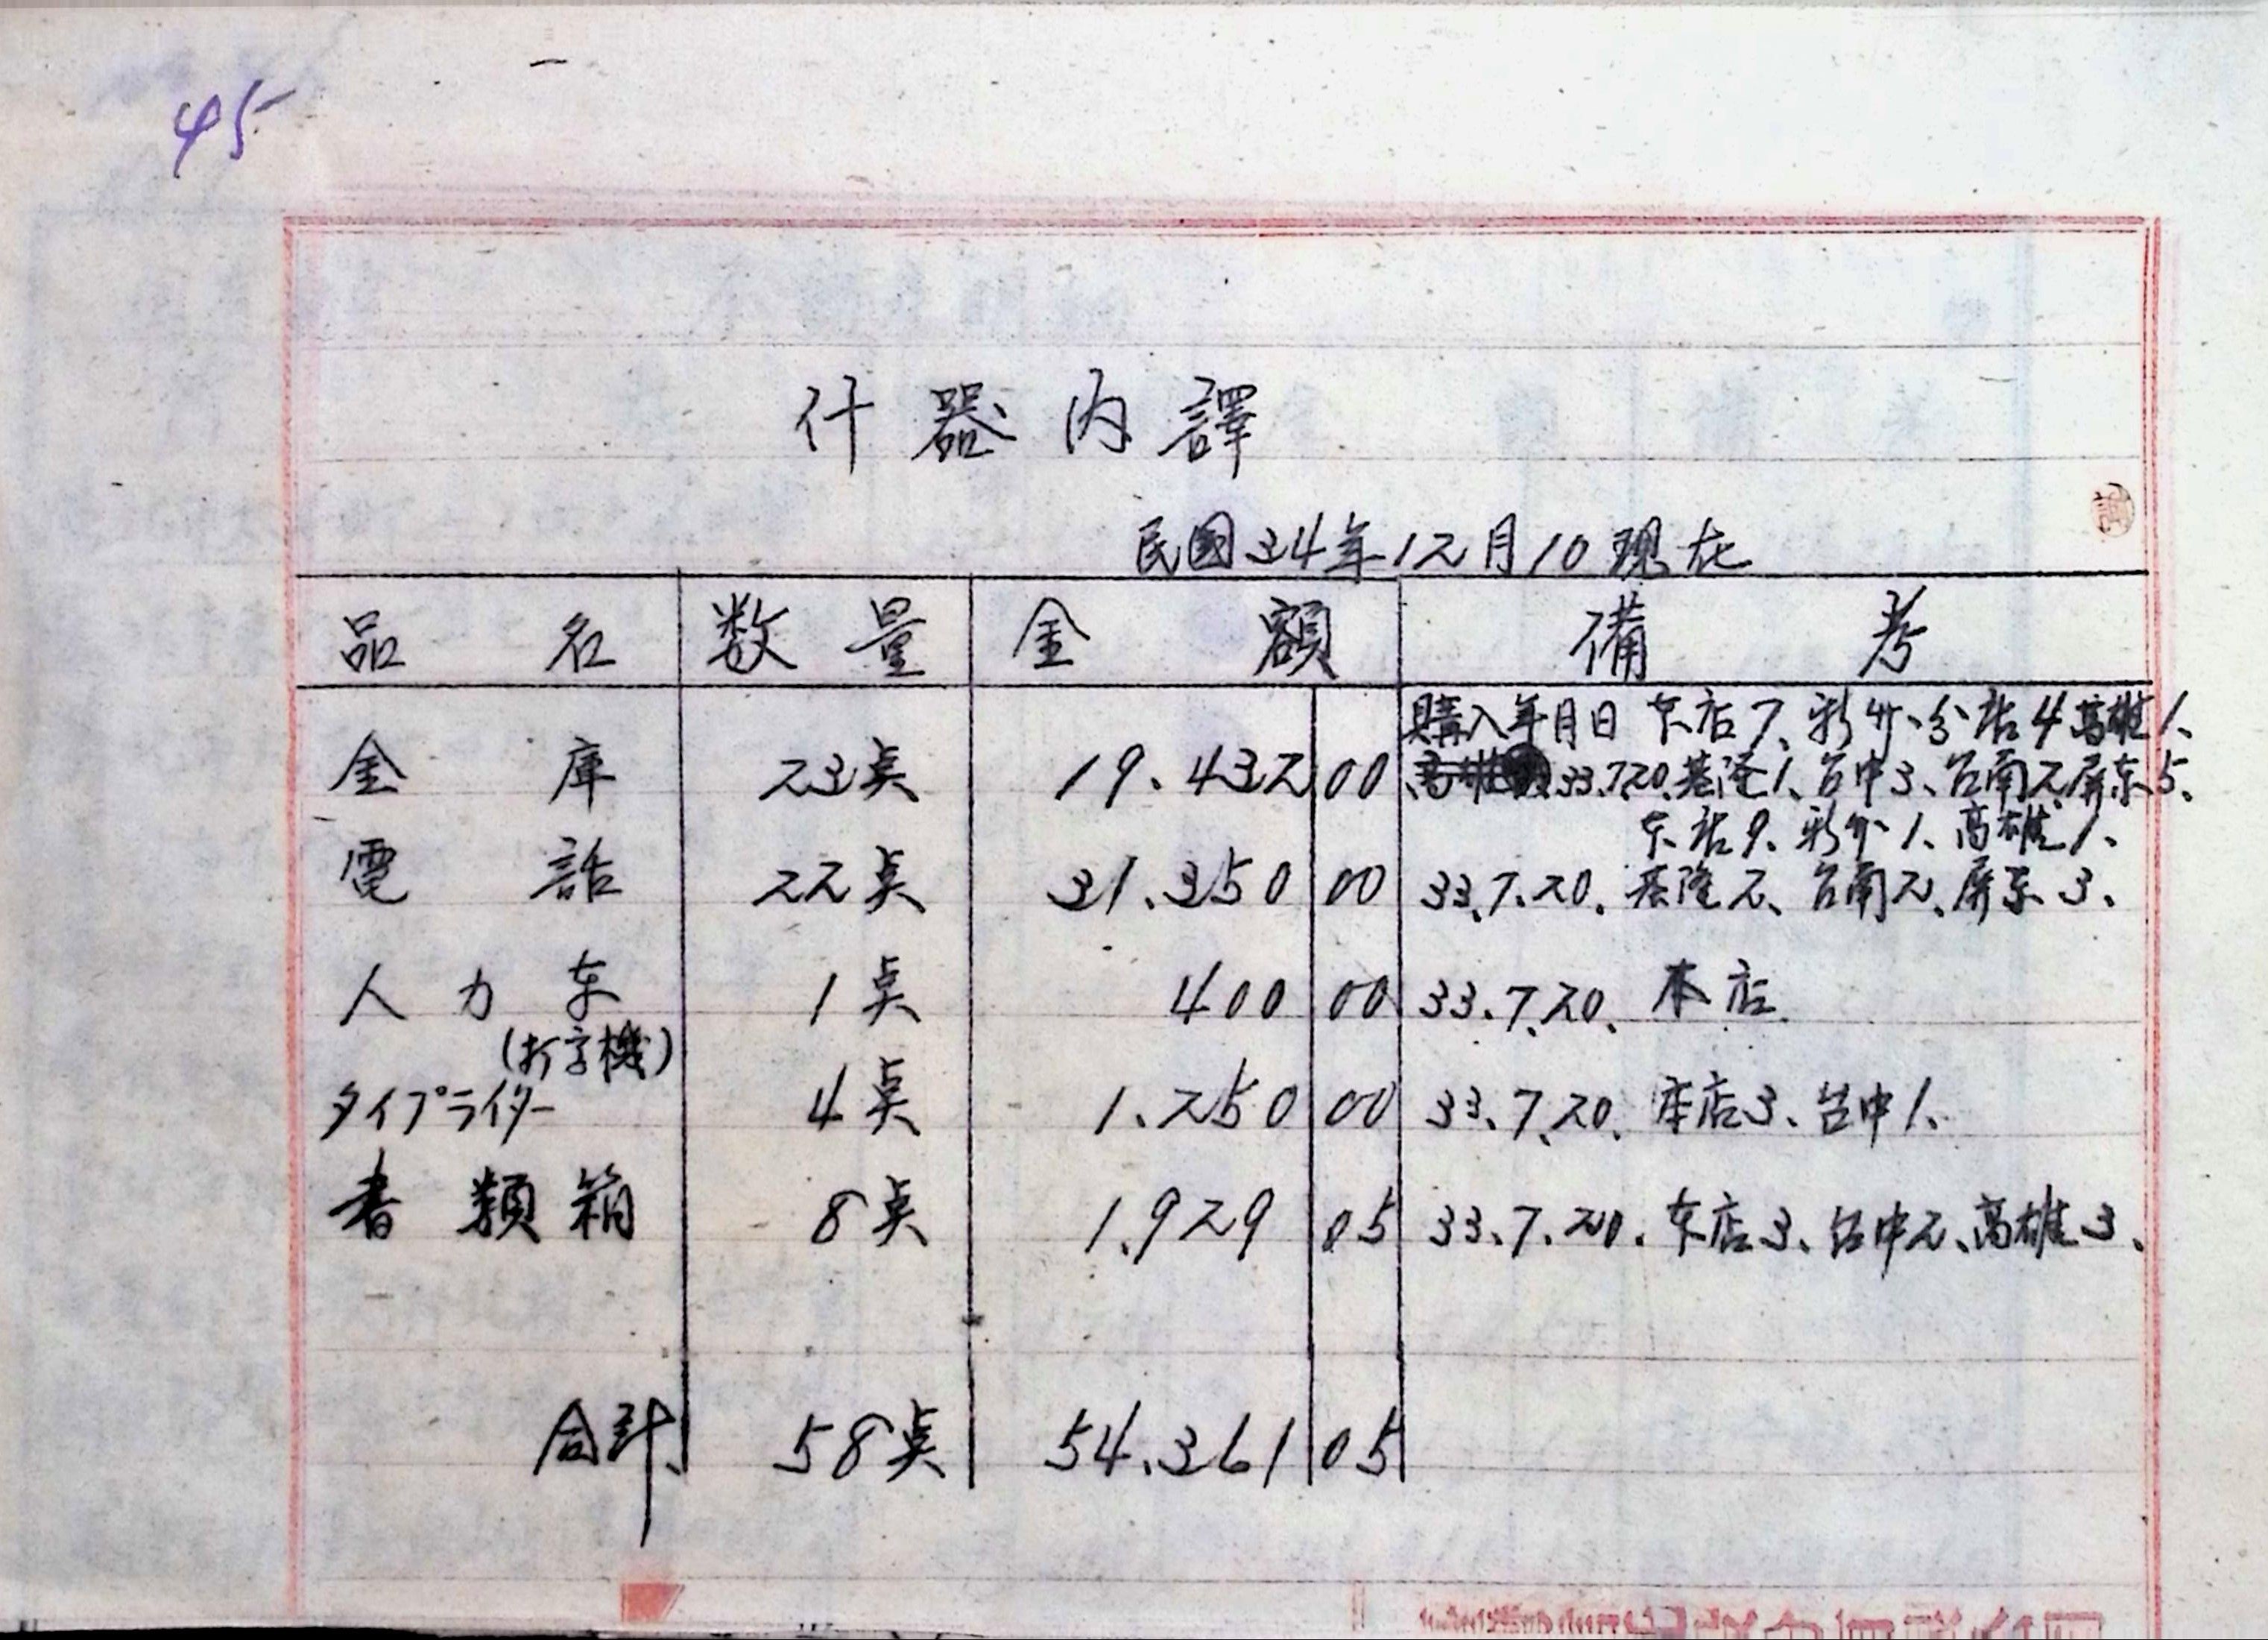 45
什器内譯
民國34年12月10現在
品名 数量 金額 備考
購入年月日 本店7、新竹、分店4高雄1、
金庫 23点 19.432 00 33.7.20.基隆1、台中3、台南2、屏东5、
本店9、新竹1、高雄1、
電話 22点 31.350 00 33.7.20.基隆2、台南2、屏东3、
人力车 1点 400 00 33.7.20. 本店
(打字機)
タイプライター 4点 1.250 00 33.7.20. 本店3、台中1、
書類箱 8点 1.929 05 33.7.20. 本店3、台中2、高雄3、
合計 58点 54.361 05